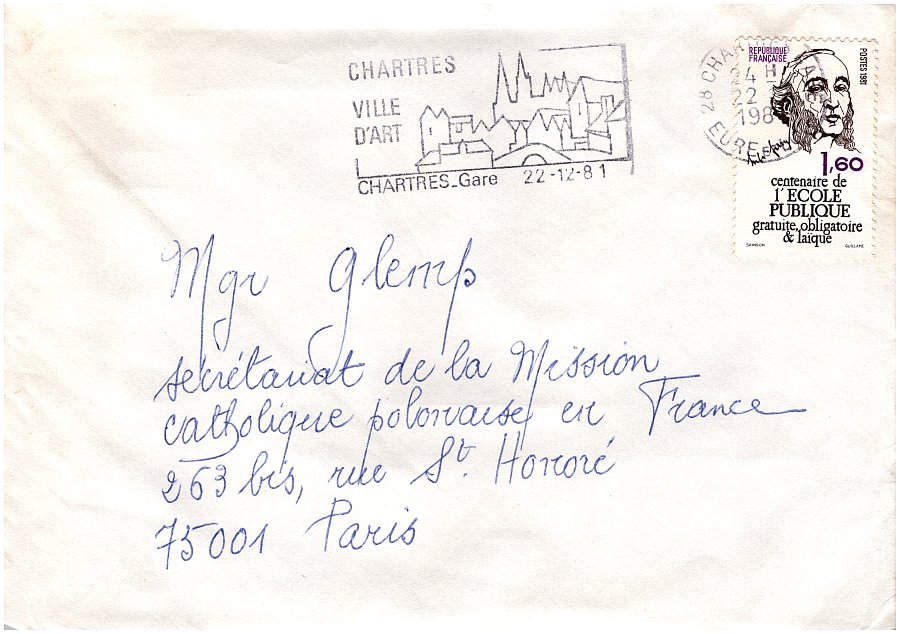 CHARTRES
VILLE
D'ART
CHARTRES_Gare 22-12-81
28 CHARTRES
24 H
22
198
EURE
REPUBLIQUE
FRANÇAISE
POSTES 1981
1,60
centenaire de
l'ECOLE
PUBLIQUE
gratuite, obligatoire
& laïque
GUILLAME
Mgr Glemp
secrétariat de la Mission
catholique polonaise en France
263 bis, rue St. Honoré
75001 Paris